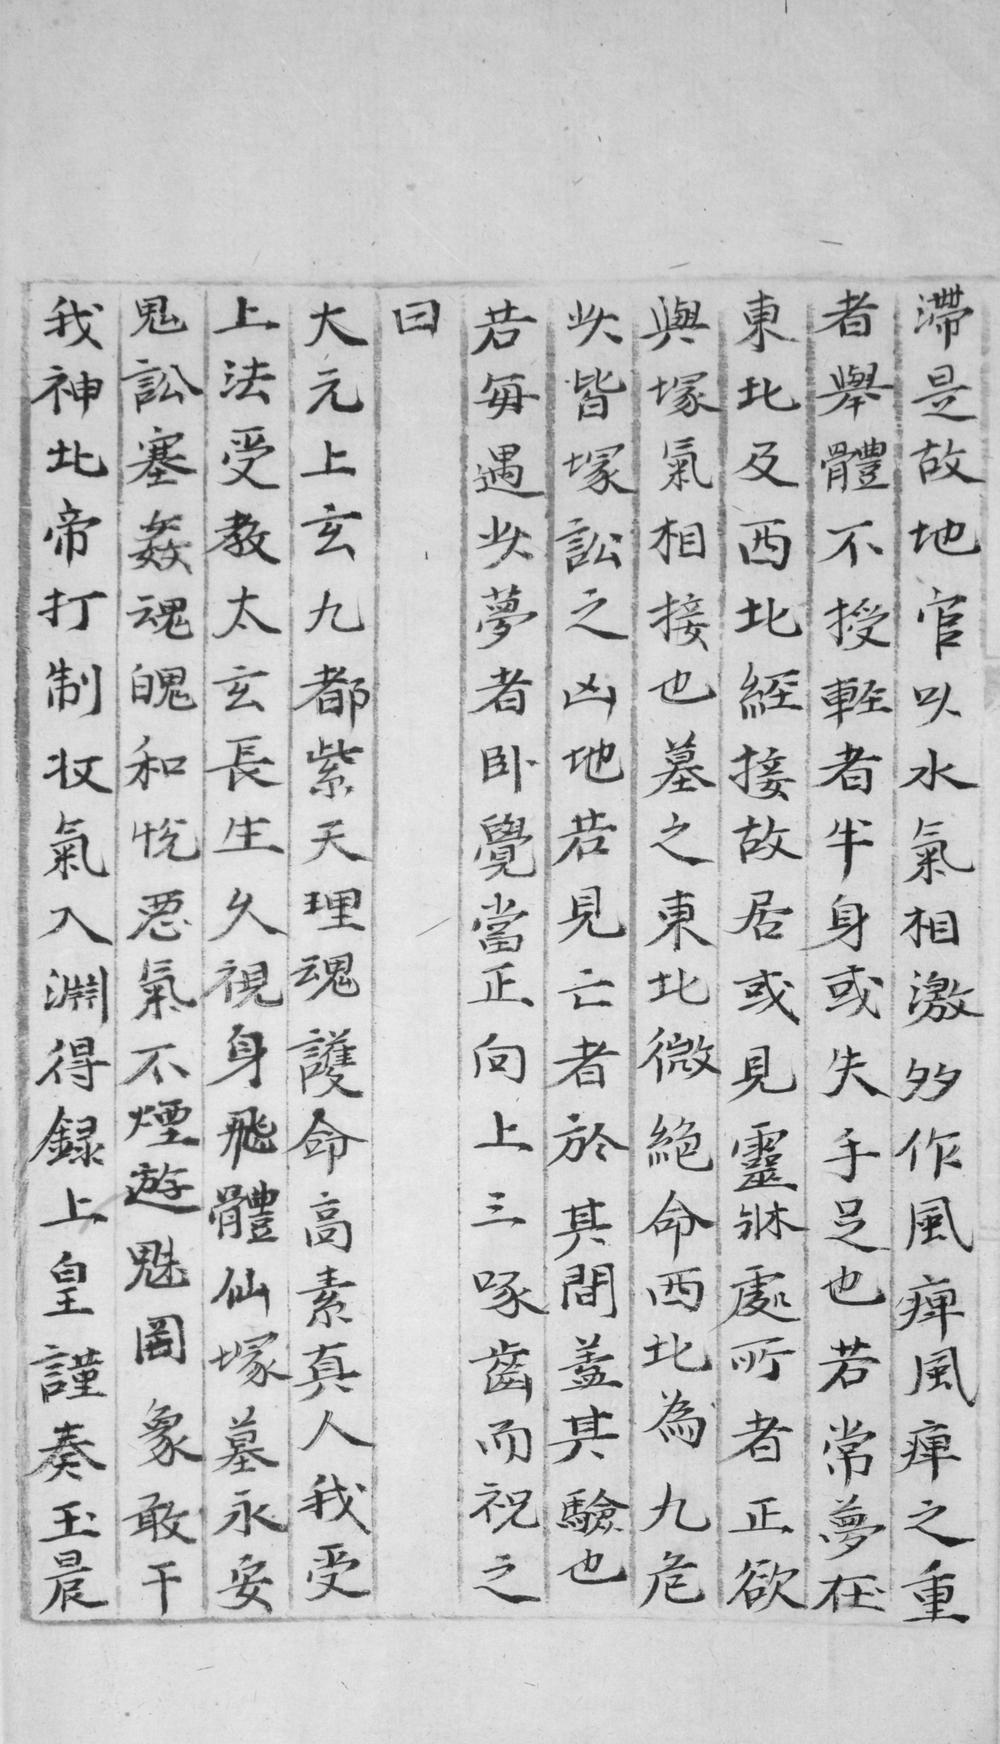 滯是故地官以水氣相激多作風痺風痺之重
者舉體不授輊者半身或失手足也若常夢在
東北及西北經接故居或見靈牀處所者正欲
與塚氣相接也墓之東北微絶命西北為九危
此皆塚訟之凶地若見亡者於其間盖其驗也
若每遇此夢者卧覺當正向上三啄齒而祝之
曰
大元上玄九都紫天理魂護命高素真人我受
上法受教太玄長生久視身飛體仙塚墓永安
鬼訟塞姦魂魄和悅惡氣不煙遊魅罔象敢干
我神北帝打制收氣入淵得録上皇謹奏玉晨